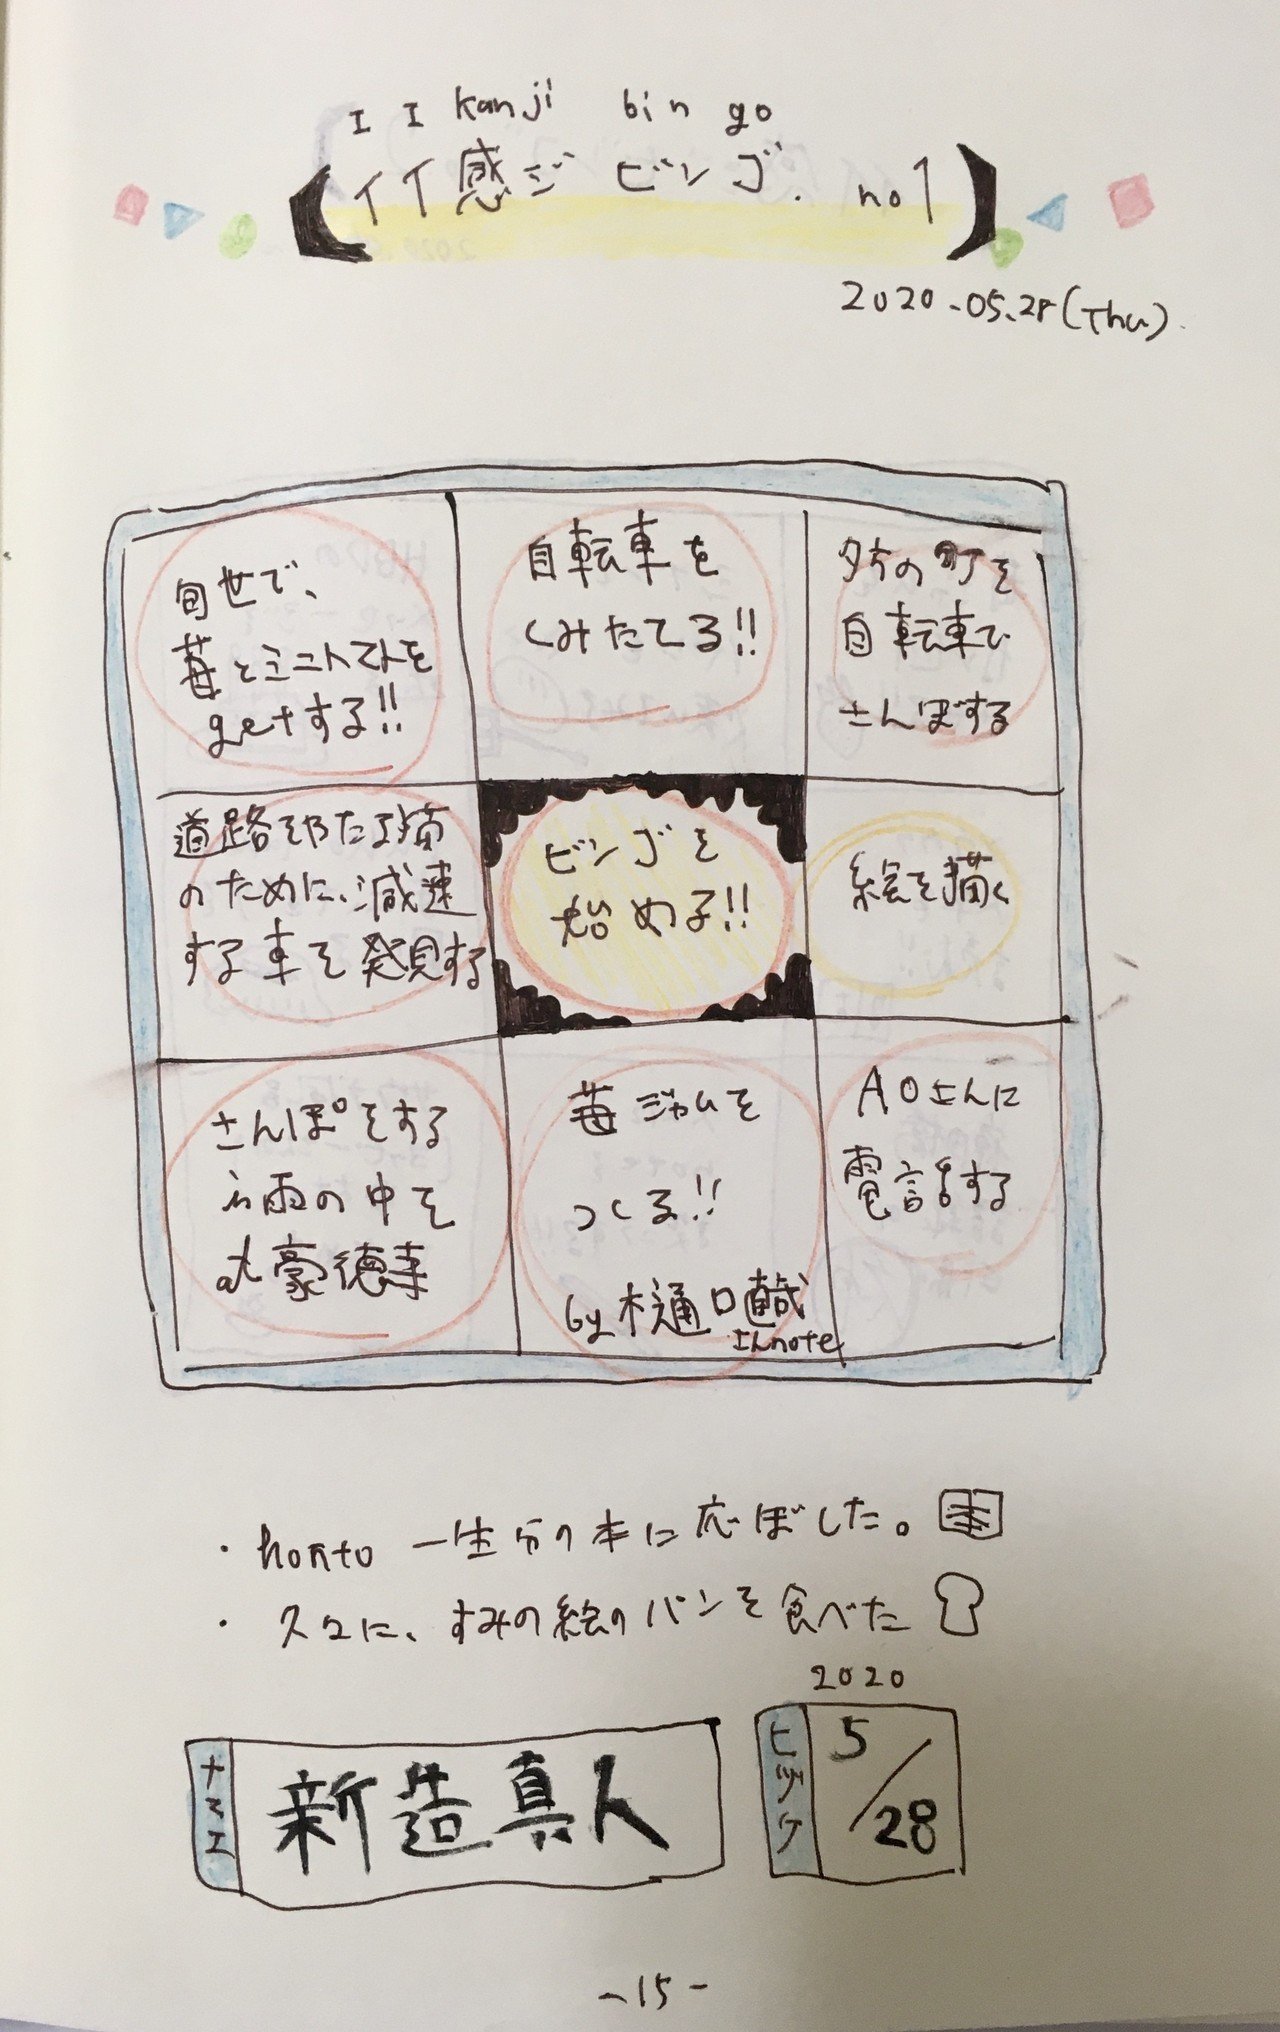 I I kanji bingo
イイ感ジ ビンゴ. no1
2020.05.28(Thu).
旬世で、
苺とミニトマトを
getする!!
自転車を
くみたてる!!
夕方の町を
自転車で
さんぽする
道路をわたる猫
のために、減速
する車を発見する
ビンゴを
始める!!
絵を描く
さんぽをする
in雨の中を
at豪徳寺
苺ジャムを
つくる!!
by樋口直哉
エんnote
AOさんに
電話する
・honto 一生分の本に応ぼした。本
・スクに、すみの絵のパンを食べた
ナマエ
新造真人
2020
ヒヅケ
5/28
-15-